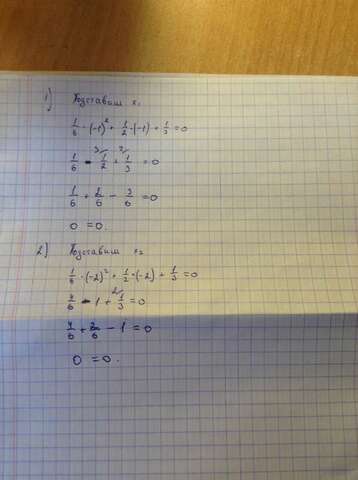 1) Подставим x₁
1/6 · (-1)² + 1/2 · (-1) + 1/3 = 0
1/6 - 3/ 1/2 + 2/ 1/3 = 0
1/6 + 2/6 - 3/6 = 0
0 = 0.
2) Подставим x₂
1/6 · (-2)² + 1/2 · (-2) + 1/3 = 0
4/6 - 1 + 2/ 1/3 = 0
4/6 + 2/6 - 1 = 0
0 = 0.